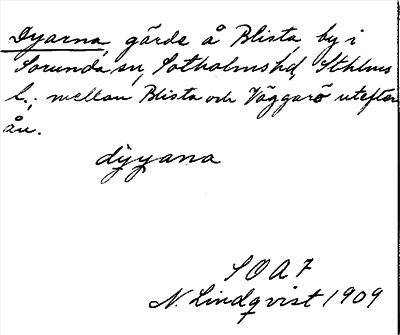 Dyarna, gärde å Blista, by i
Sorunda sn, Sotholms hd, Sthlms
l.; mellan Blista och Väggarö utefter
ån.
dyyana
SOAF
N. Lindqvist 1909